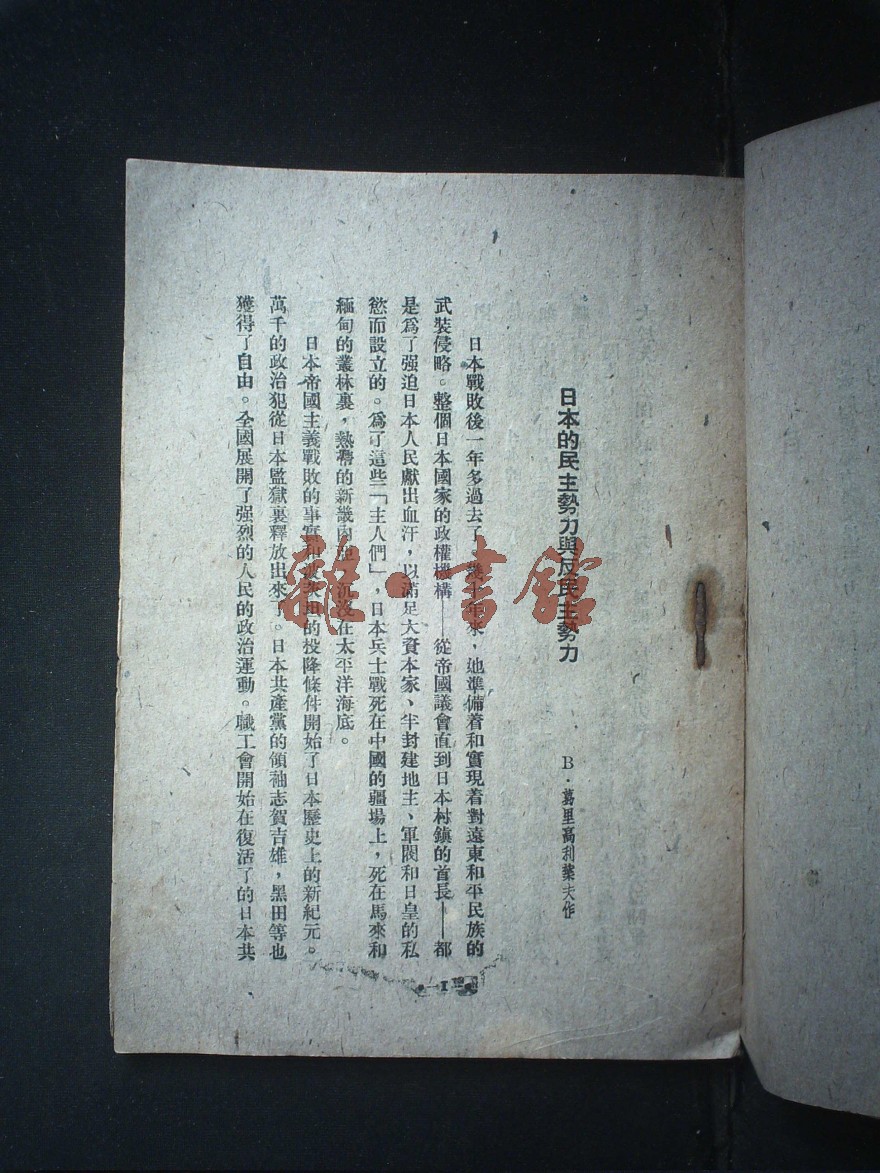 日本的民主勢力與反民主勢力
B·葛里高利葉夫作
日本戰敗後一年多過去了。幾十年來，她準備着和實現着對遠東和平民族的
武裝侵略。整個日本國家的政權機構——從帝國議會直到日本村鎮的首長——都
是爲了强迫日本人民獻出血汗，以滿足大資本家、半封建地主、軍閥和日皇的私
慾而設立的。爲了這些「主人們」，日本兵士戰死在中國的疆場上，死在馬來和
緬甸的叢林裏，熱帶的新畿內亞，沉沒在太平洋海底。
日本帝國主義戰敗的事實和波茨坦的投降條件開始了日本歷史上的新紀元。
萬千的政治犯從日本監獄裏釋放出來了。日本共產黨的領袖志賀吉雄，黑田等也
獲得了自由。全國展開了强烈的人民的政治運動。職工會開始在復活了的日本共
1
雜·書館